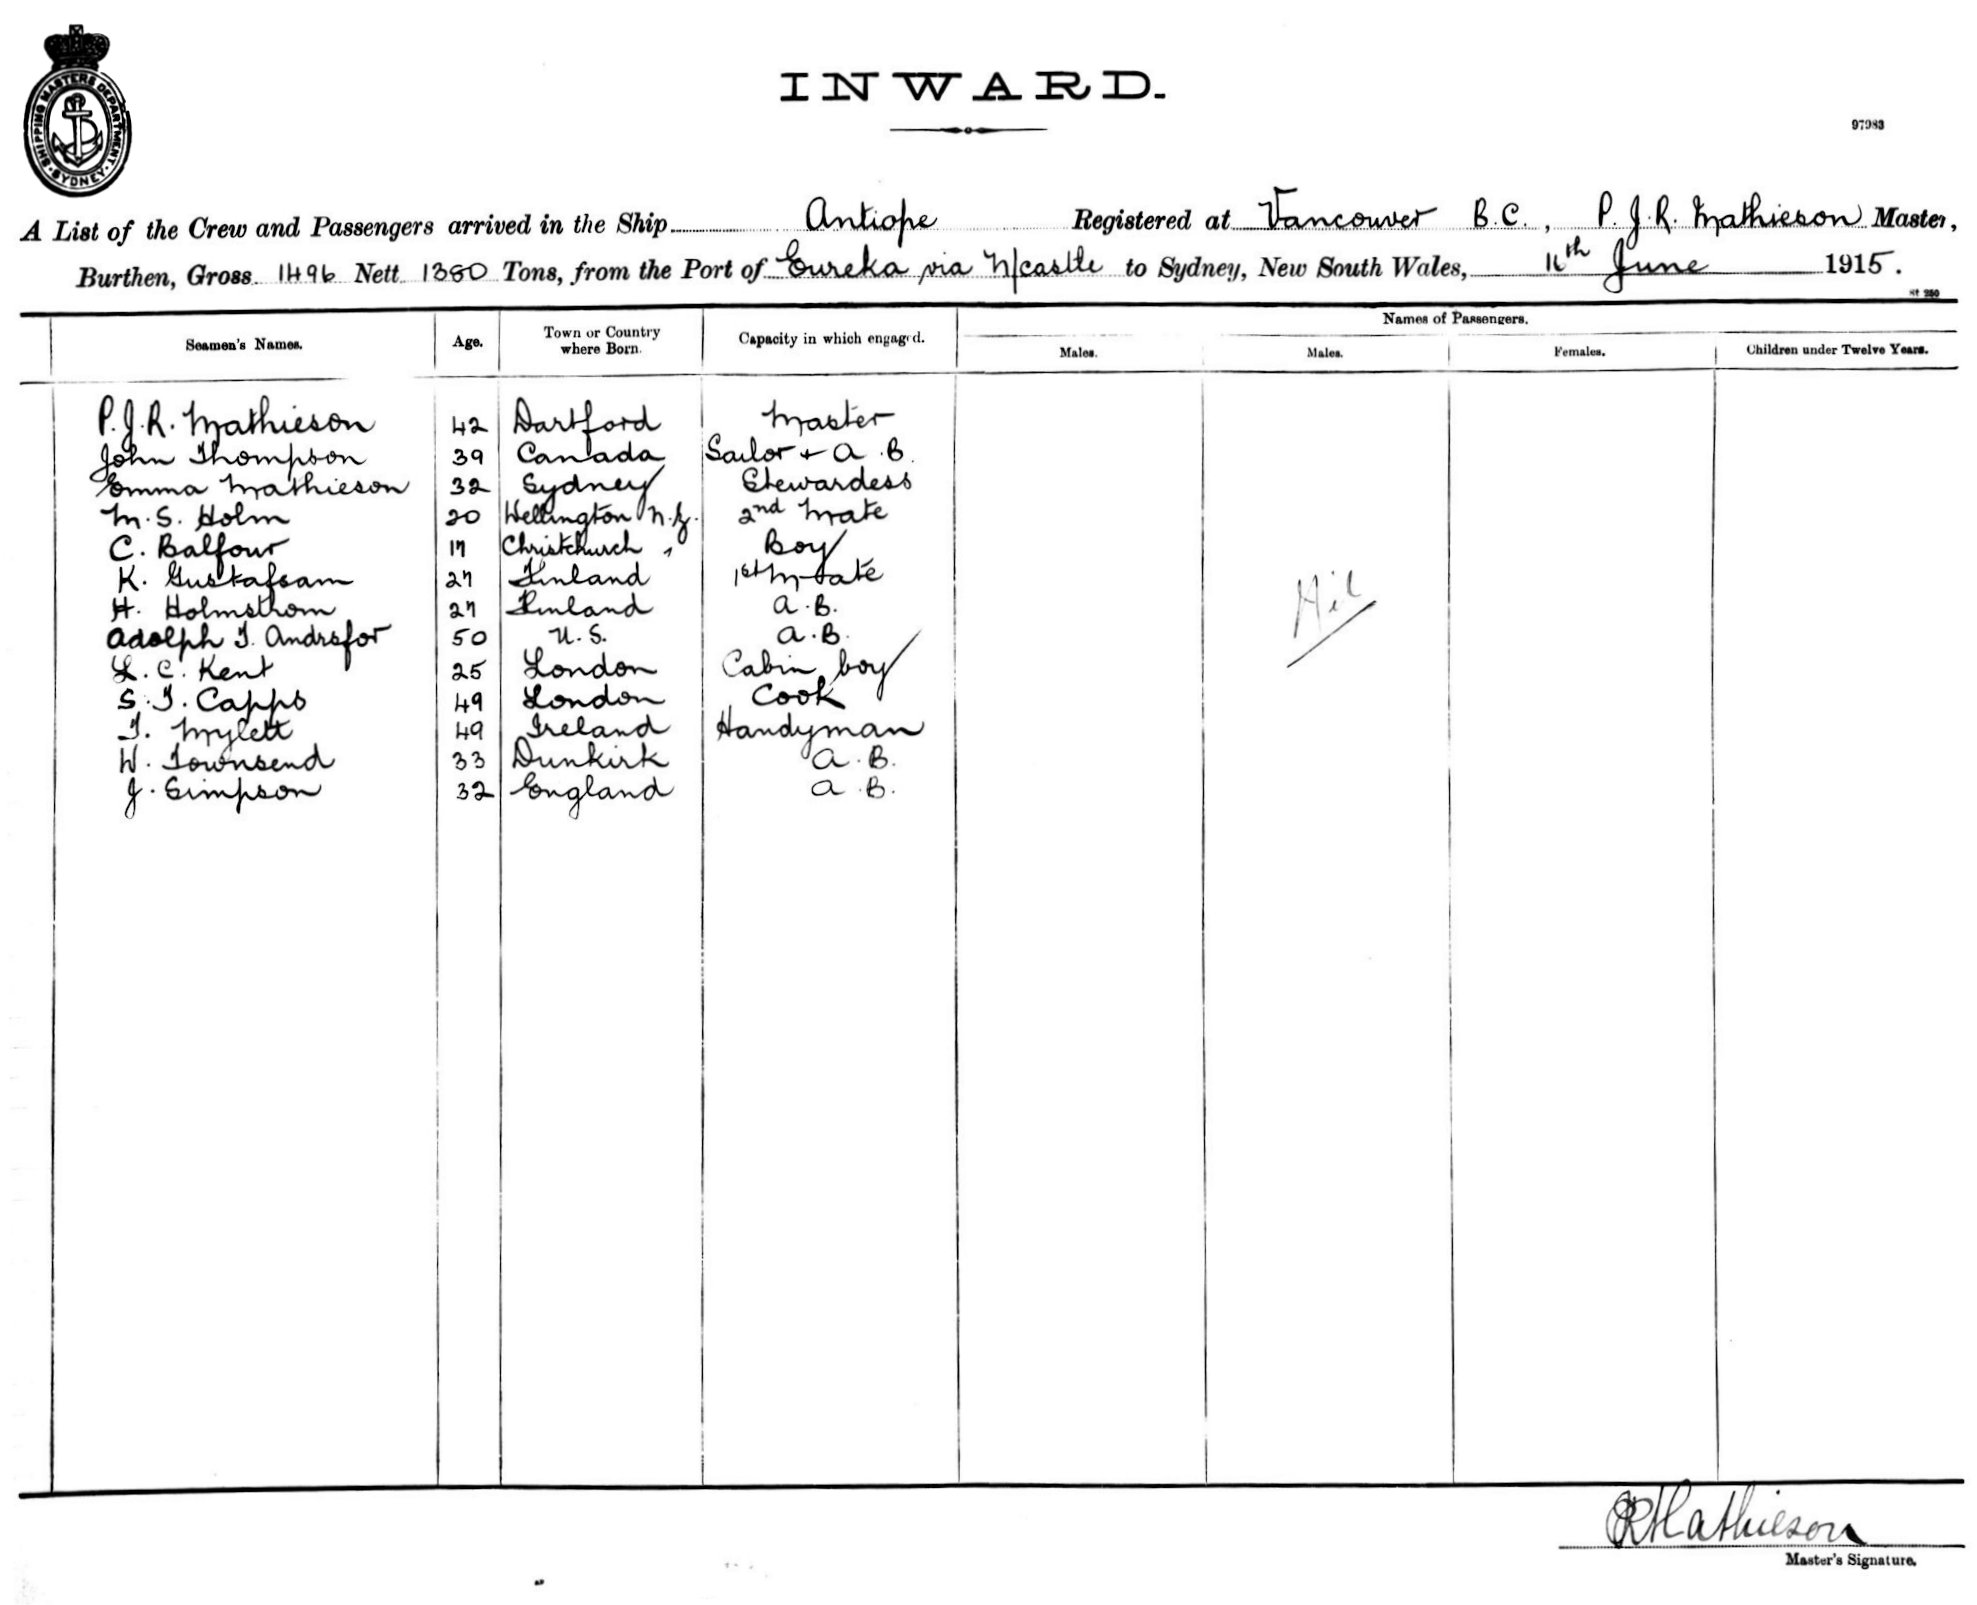 SHIPPING MASTERS DEPARTMENT · SYDNEY ·
INWARD.
97983
A List of the Crew and Passengers arrived in the Ship Antiope Registered at Vancouver B.C., P.J.R. Mathieson Master,
Burthen, Gross 1496 Nett 1380 Tons, from the Port of Eureka via N/castle to Sydney, New South Wales, June 1915.
St 250
Names of Passengers.
Seamen's Names. Age. Town or Country where Born. Capacity in which engaged. Males. Males. Females. Children under Twelve Years.
P.J.R. Mathieson 42 Dartford Master
John Thompson 39 Canada Sailor + A.B.
Emma Mathieson 32 Sydney Stewardess
M.S. Holm 20 Wellington N.Z. 2nd Mate
C. Balfour 17 Christchurch " Boy
K. Gustafsam 27 Finland 1st Mate
H. Holmstrom 27 Finland A.B.
Adolph T. 50 U.S. A.B.
L.C. Kent 25 London Cabin boy
S.T. Capps 49 London Cook
T. Mylett 49 Ireland Handyman
W. Townsend 33 Dunkirk A.B.
J. Simpson 32 England A.B.
Nil
PJRMathieson
Master's Signature.